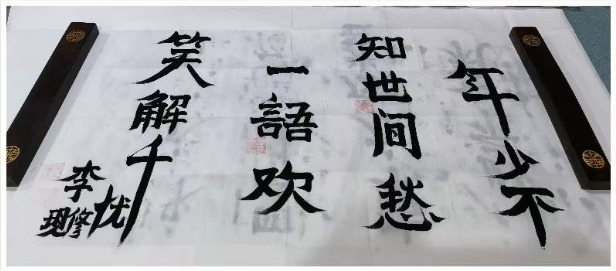 年少不
知世间愁
一語欢
笑解千忧
李修现